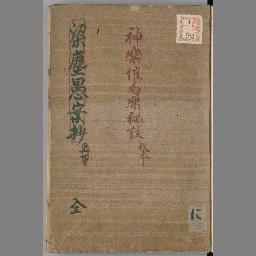 神樂催馬樂秘註
梁塵愚案抄
全
に